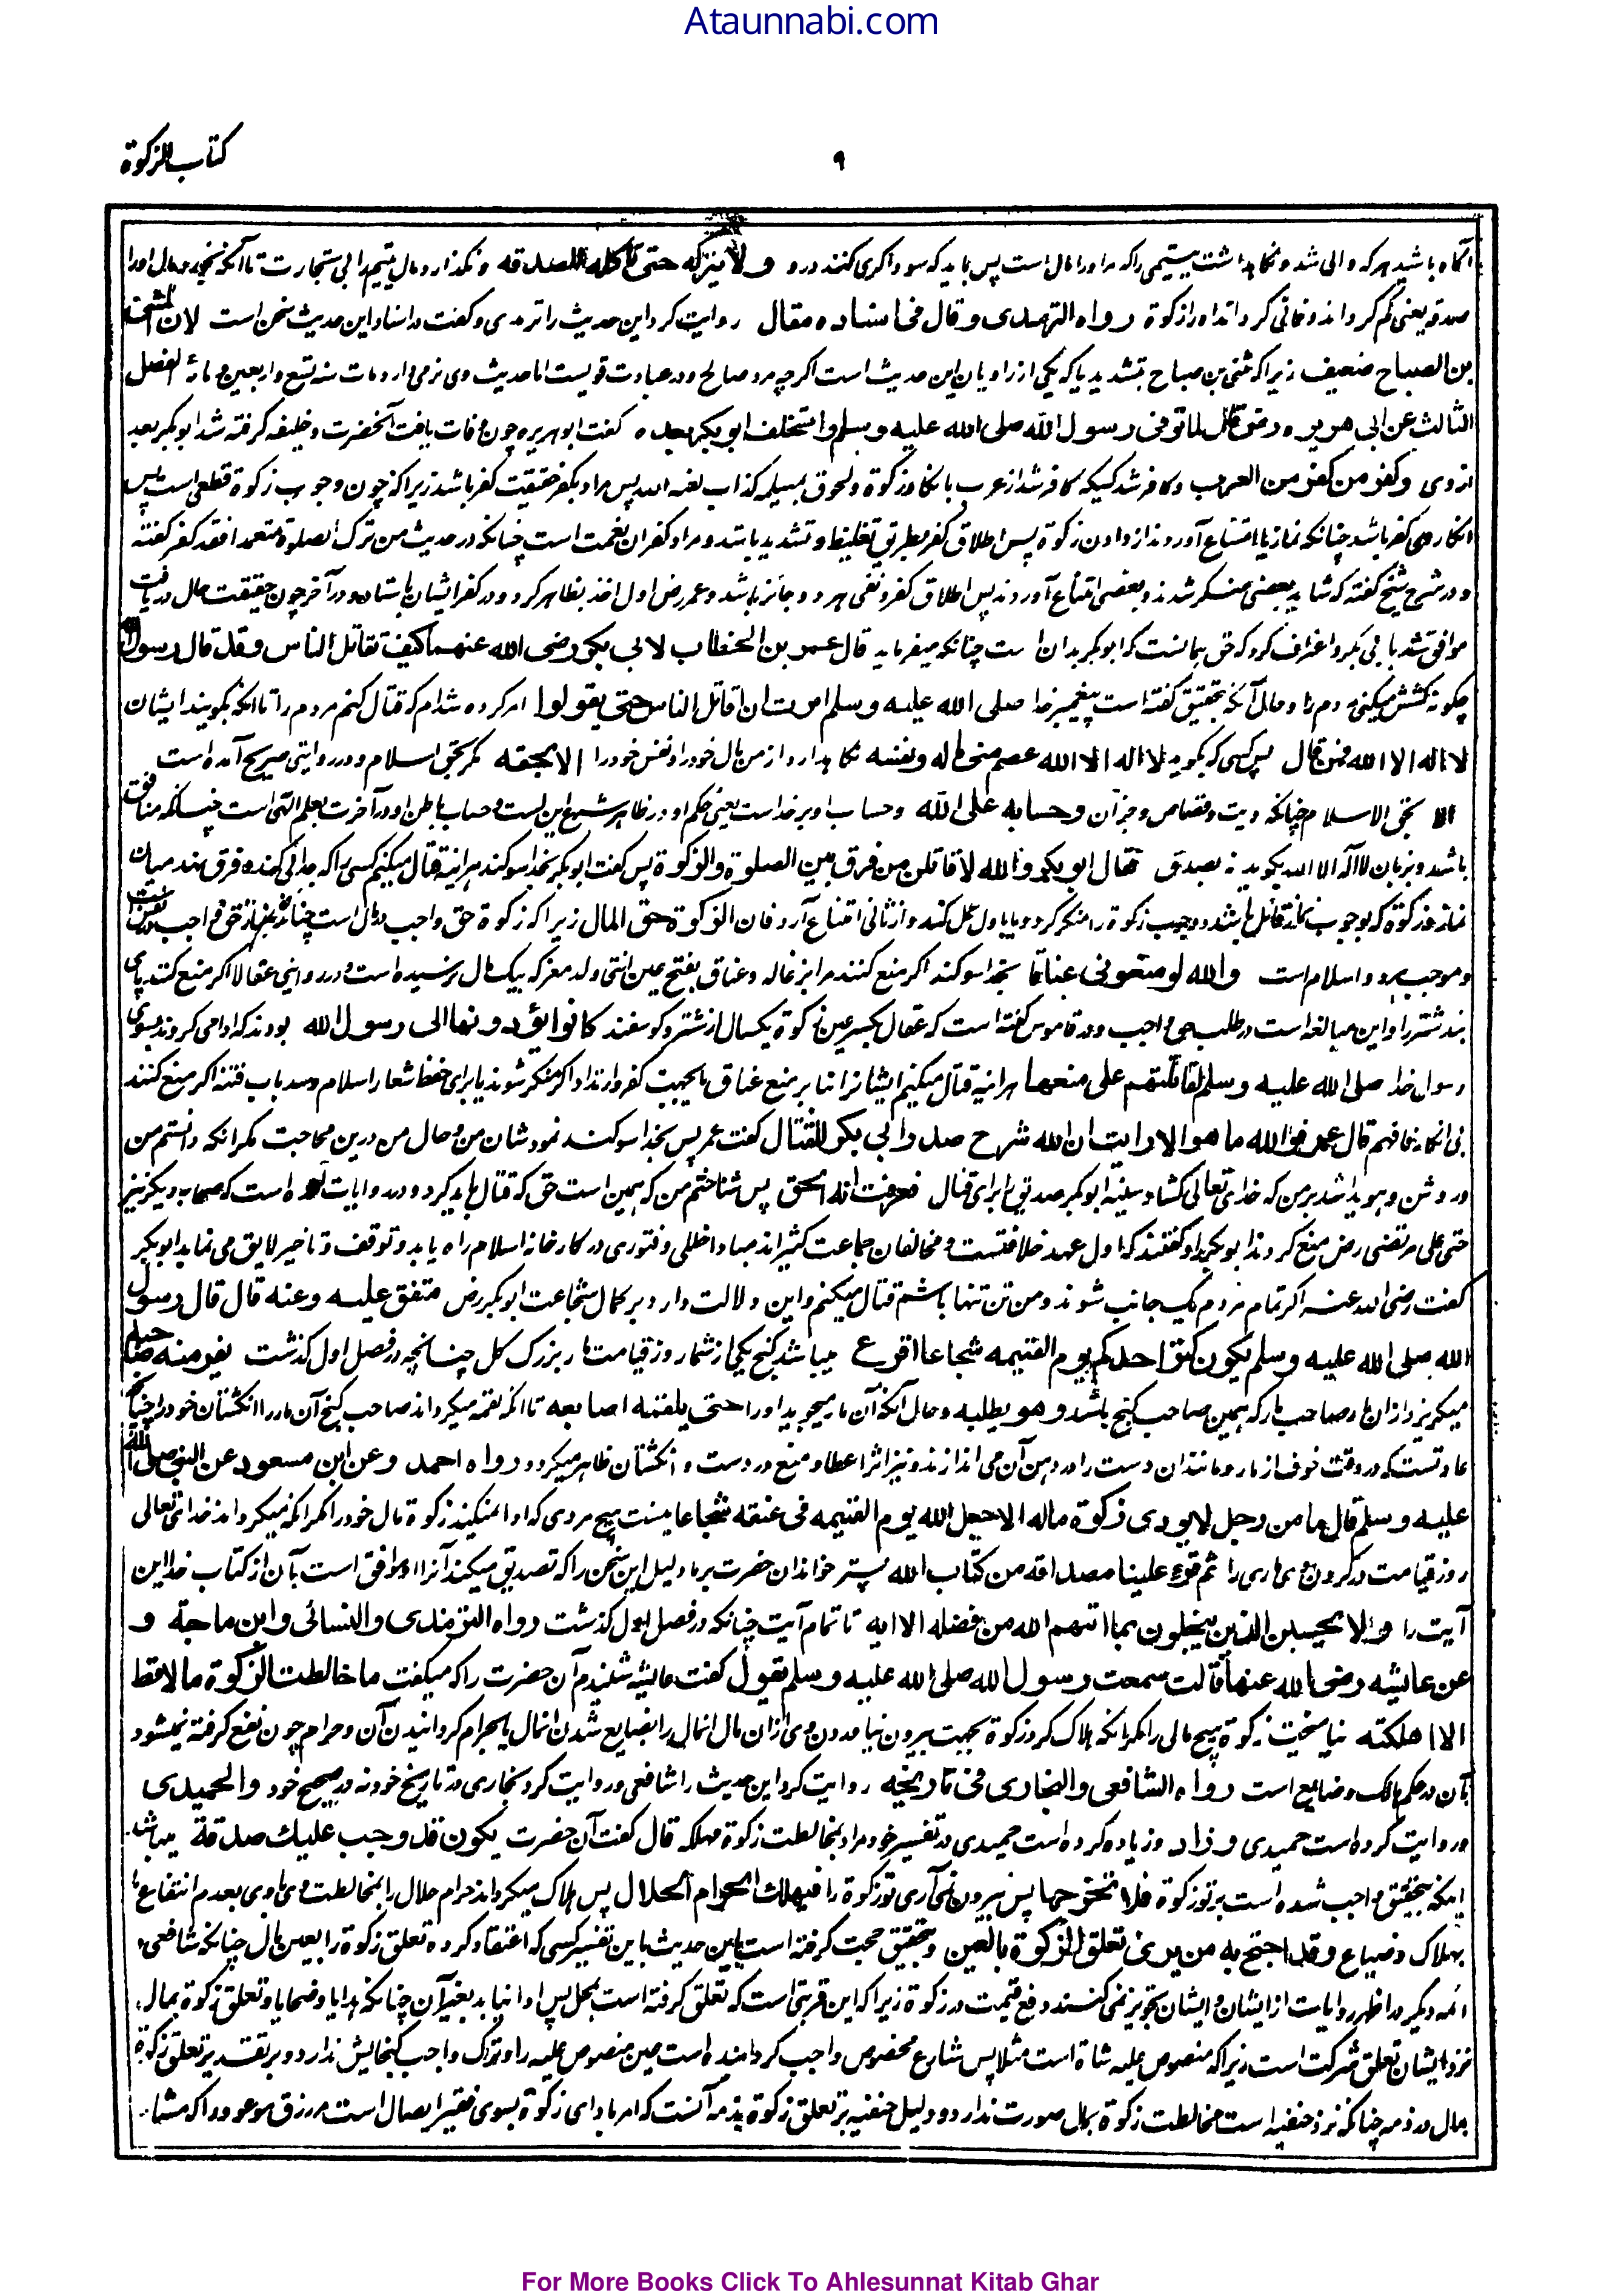 Ataunnabi.com
کتاب الزکوة
۹
آگاه باشید هر که والی شد و نگاهداشت یتیمی را که مر او را مال است پس باید که سوداگری کند در و ولا یترکه حتی تأکله الصدقه و نگذارد مال یتیم را بی تجارت تا آنکه نخورد مال او را
صدقه یعنی کم گرداند و فانی گرداند او را زکوة رواه الترمذی و قال فی اسناده مقال روایت کرد این حدیث را ترمذی و گفت در اسناد این حدیث سخن است لان المثنی
بن الصباح ضعیف زیرا که مثنی بن صباح بتشدید با که یکی از راویان این حدیث است اگرچه مرد صالح و در عبادت قویست اما حدیث وی نرمی دارد مات سنه تسع و اربعین و مائة الفصل
الثالث عن ابی هریره رض قال لما توفی رسول الله صلی الله علیه وسلم واستخلف ابو بکر بعده گفت ابو هریره چون وفات یافت آنحضرت و خلیفه گرفته شد ابو بکر بعد
از وی وکفر من کفر من العرب و کافر شد کسیکه کافر شد از عرب بانکار زکوة و لحوق بمسیلمه کذاب لعنه الله پس مراد بکفر حقیقت کفر باشد زیرا که چون وجوب زکوة قطعی است پس
انکار وی کفر باشد چنانکه نماز یا امتناع آوردند از دادن زکوة پس اطلاق کفر بطریق تغلیظ و تشدید باشد و مراد کفران نعمت است چنانکه در حدیث من ترک الصلوة متعمدا فقد کفر گفته
و در شرح شیخ گفته که شاید بعضی منکر شدند و بعضی امتناع آوردند پس اطلاق کفر و نفی هر دو جائز باشد و عمر رض اول اخذ بظاهر کرد و در کفر ایشان باستاد و در آخر چون حقیقت حال دریافت
موافق شد با ابی بکر و اعتراف کرد که حق همانست که ابو بکر بدان است چنانکه میفرماید قال عمر بن الخطاب لابی بکر رضی الله عنهما کیف تقاتل الناس وقد قال رسول الله
چگونه کشش میکنی مردم را و حال آنکه بتحقیق گفته است پیغمبر خدا صلی الله علیه وسلم امرت ان اقاتل الناس حتی یقولوا امر کرده شدام که قتال کنم مردم را تا آنکه بگویند ایشان
لا اله الا الله فمن قال پس کسی که بگوید لا اله الا الله عصم منی ماله ونفسه نگاهدارد از من مال خود را و نفس خود را الا بحقه مگر بحق اسلام و در روایتی صریح آمده است
الا بحق الاسلام چنانکه دیت و قصاص و جز آن وحسابه علی الله و حساب او بر خداست یعنی حکم او در ظاهر شرع این است و حساب باطن او در آخرت بعلم الهی است چنانکه منافق
باشد و بزبان لا اله الا الله بگوید نه بصدق فقال ابو بکر والله لاقاتلن من فرق بین الصلوة والزکوة پس گفت ابو بکر بخدا سوگند هر آینه قتال میکنم کسی را که جدائی کند و فرق نهد میان
نماز و زکوة که بوجوب نماز قائل باشد و وجوب زکوة را منکر گردد یا باول عمل کند و از ثانی امتناع آرد فان الزکوة حق المال زیرا که زکوة حق واجب در مال است چنانکه نماز حق واجب در نفس است
و موجب هر دو اسلام است والله لو منعونی عناقا بخدا سوگند اگر منع کنند مرا بزغاله و عناق بفتح عین انثی ولد معز که بیک سال نرسیده است و در روایتی عقالا اگر منع کنند پای
بند شتر را و این مبالغه است در طلب حق واجب و در قاموس گفته است که عقال بکسر عین زکوة یکسال از شتر و گوسفند کانوا یؤدونها الی رسول الله بودند که ادا می کردند بسوی
رسول خدا صلی الله علیه وسلم لقاتلتهم علی منعها هر آینه قتال میکنم ایشانرا بنا بر منع عناق یا بجهت کفر و ارتداد اگر منکر شوند یا برای حفظ شعار اسلام و سد باب فتنه اگر منع کنند
بی انکار فافهم قال عمر فوالله ما هو الا رایت ان الله شرح صدر ابی بکر للقتال گفت عمر پس بخدا سوگند نمود شان من و حال من درین محاجت مگر آنکه دانستم من
و روشن و هویدا شد بر من که خدای تعالی گشاد سینه ابو بکر صدیق را برای قتال فعرفت انه الحق پس شناختم من که همین است حق که قتال باید کرد و در روایات آمده است که صحابه دیگر نیز
حتی علی مرتضی رض منع کردند ابو بکر را و گفتند که اول عهد خلافتست و مخالفان جماعت کثیر اند مبادا خللی و فتوری در کارخانه اسلام راه یابد و توقف و تاخیر لایق می نماید ابو بکر
گفت رضی الله عنه اگر تمام مردم یک جانب شوند و من تن تنها باشم قتال میکنم و این دلالت دارد بر کمال شجاعت ابو بکر رض متفق علیه وعنه قال قال رسول
الله صلی الله علیه وسلم یکون کنز احدکم یوم القیمه شجاعا اقرع میباشد گنج یکی از شما روز قیامت مار بزرگ کل چنانچه در فصل اول گذشت یفر منه صاحبه
میگریزد ازان مار صاحب مار که همین صاحب گنج باشد وهو یطلبه و حال آنکه آن مار میجوید او را حتی یلقمه اصابعه تا آنکه لقمه میگرداند صاحب گنج آن مار را انگشتان خود را چنانکه
عادتست که در وقت خوف از مار و مانند آن دست را در دهن آن می اندازند و نیز اثر اعطا و منع در دست و انگشتان ظاهر میگردد رواه احمد وعن ابن مسعود عن النبی صلی الله
علیه وسلم قال ما من رجل لا یودی زکوة ماله الا جعل الله یوم القیمه فی عنقه شجاعا نیست هیچ مردی که ادا نمیکند زکوة مال خود را مگر آنکه میگرداند خدای تعالی
روز قیامت در گردن وی ماری را ثم قرء علینا مصداقه من کتاب الله پستر خواند آن حضرت بر ما دلیل این سخن را که تصدیق میکند آنرا و موافق است بآن از کتاب خدا این
آیت را ولا یحسبن الذین یبخلون بما اتهم الله من فضله الایه تا تمام آیت چنانکه در فصل اول گذشت رواه الترمذی والنسائی وابن ماجة و
عن عایشه رضی الله عنها قالت سمعت رسول الله صلی الله علیه وسلم یقول گفت عایشه شنیدم آن حضرت را که میگفت ما خالطت الزکوة مالا قط
الا اهلکته نیامیخت زکوة هیچ مالی را مگر آنکه هلاک کرد زکوة بجهت بیرون نیامدن وی ازان مال آنمال را بضایع شدن آنمال یا بحرام گردانیدن آن و حرام چون نفع گرفته نمیشود
بآن در حکم هالک و ضایع است رواه الشافعی والبخاری فی تاریخه روایت کرد این حدیث را شافعی و روایت کرد بخاری در تاریخ خود نه در صحیح خود والحمیدی
و روایت کرده است حمیدی وزاد و زیاده کرده است حمیدی در تفسیر خود مراد بمخالطت زکوة مهلکه قال گفت آن حضرت یکون قد وجب علیك صدقة میباشد
اینکه بتحقیق واجب شده است بر تو زکوة فلا تخرجها پس بیرون نمی آری تو زکوة را فیهلك الحرام الحلال پس هلاک میگرداند حرام حلال را بمخالطت وی باوی بعدم انتفاع یا
بهلاک و ضیاع وقد احتج به من یری تعلق الزکوة بالعین و بتحقیق حجت گرفته است باین حدیث باین تفسیر کسی که اعتقاد کرده تعلق زکوة را بعین مال چنانکه شافعی و
ائمه دیگر در اظهر روایات از ایشان و ایشان تجویز نمی کنند دفع قیمت در زکوة زیرا که این قربتی است که تعلق گرفته است بمحل پس ادا نیابد بغیر آن چنانکه هدایا و ضحایا و تعلق زکوة بمال
نزد ایشان تعلق شرکت است زیرا که منصوص علیه شاة است مثلا پس شارع مخصوص واجب گردانیده است عین منصوص علیه را و ترک واجب گنجایش ندارد و بر تقدیر تعلق زکوة
بمال در ذمه چنانکه نزد حنفیه است مخالطت زکوة بمال صورت ندارد و دلیل حنفیه بر تعلق زکوة بذمه آنست که امر بادای زکوة بسوی فقیر ایصال است مر رزق موعود را که مشار
For More Books Click To Ahlesunnat Kitab Ghar